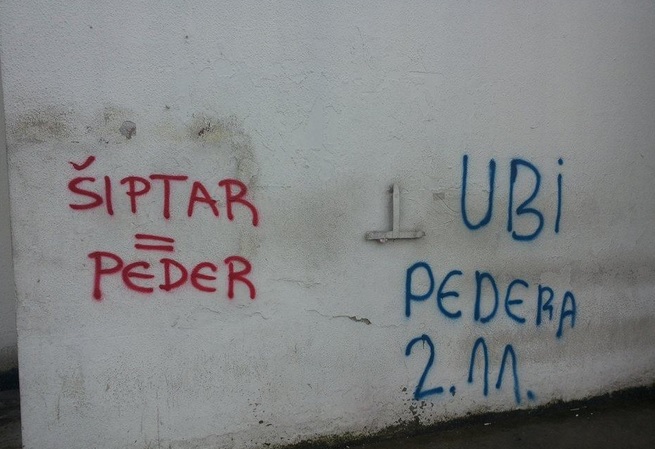 ŠIPTAR
=
PEDER
UBi
PEDERA
2.11.